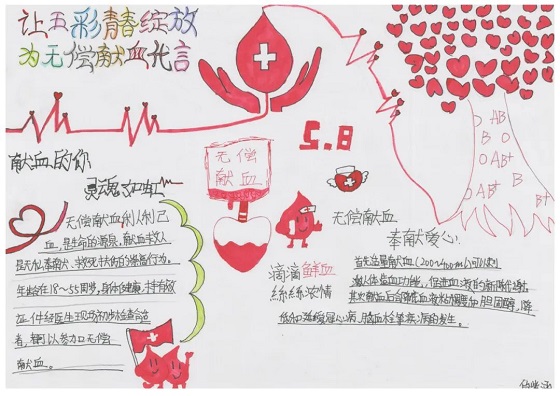 让五彩青春绽放
为无偿献血代言
5.8
献血的你
灵魂如虹
无偿献血
无偿献血利人利己
血,是生命的源泉,献血救人
是无私奉献、救死扶伤的
年龄在18～55周岁,身体健康,持有效
证件经医生
者,都可以参加无偿
献血。
滴滴鲜血
丝丝浓情
无偿献血
奉献爱心!
首先适量献血(200~400ml)可以
激人体造血功能,促进血液的新陈代谢
其次献血后会降低血液粘稠度和胆固醇,降
低和
冠心病、脑血栓等疾病的发生。
O AB
B O
O AB+
O B
AB+ B